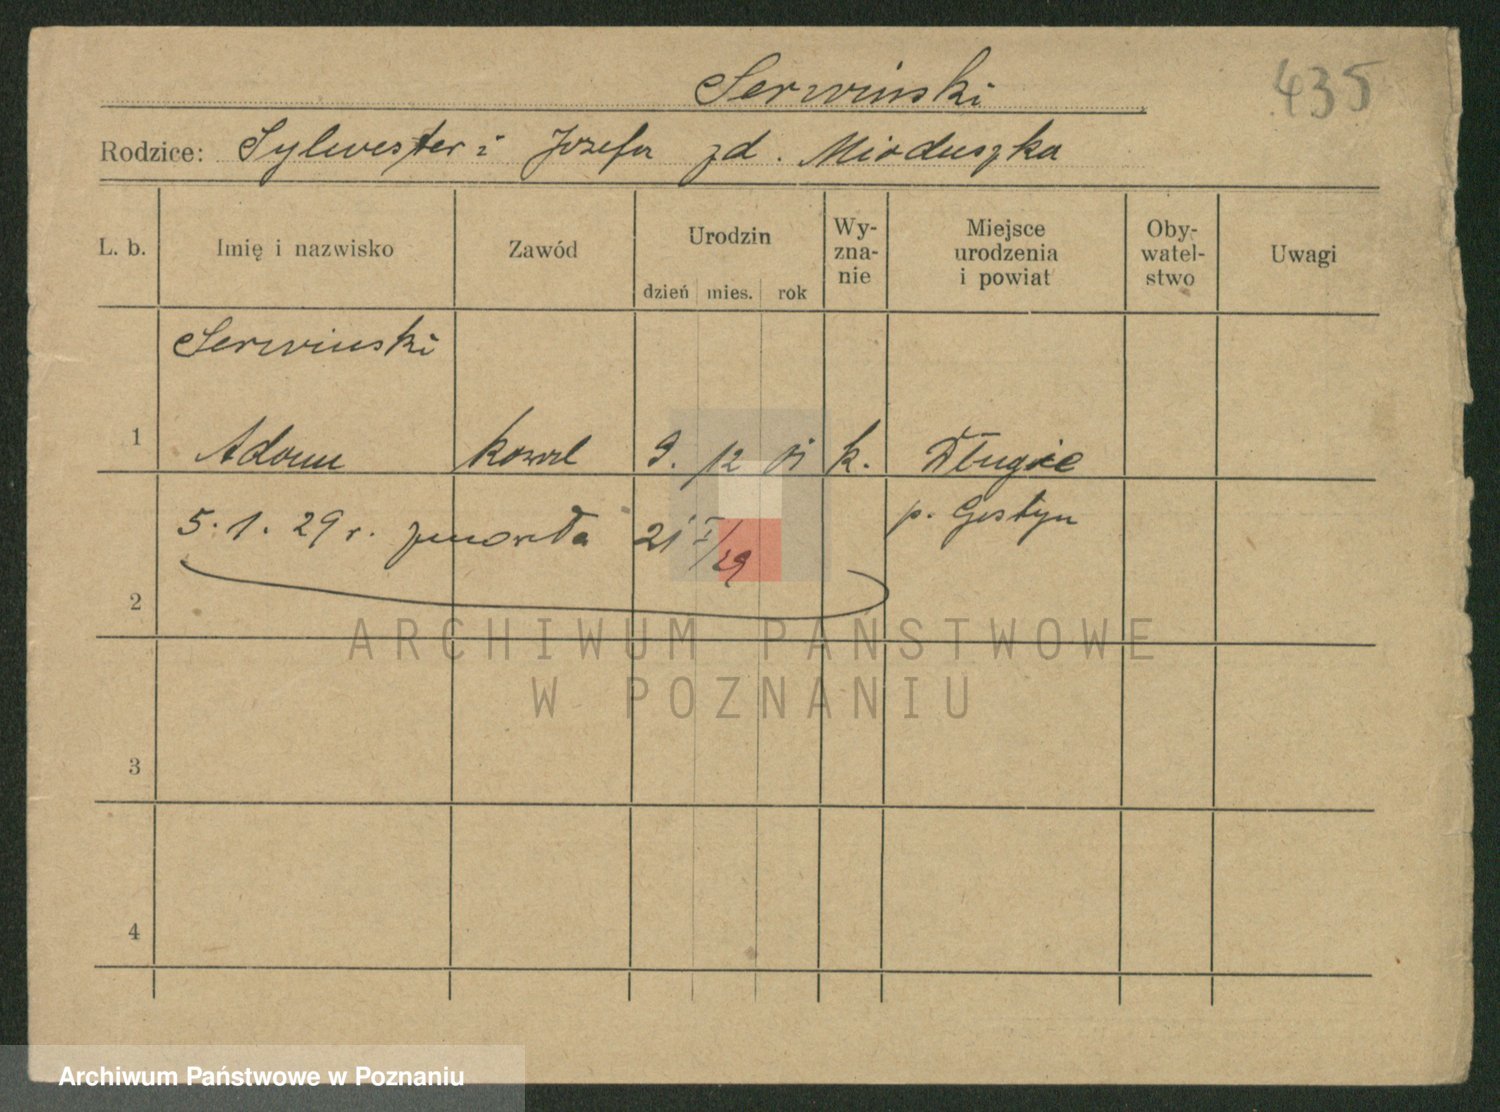 Serwinski
435
Rodzice: Sylwester i Józefa zd. Mioduszka
L. b. Imię i nazwisko Zawód Urodzin dzień mies. rok Wy-zna-nie Miejsce urodzenia i powiat Oby-watel-stwo Uwagi
Serwinski
1 Adam kowal 9. 12 01 k. Długie
p. Gostyn
5. 1. 29 r. zmarła 21 I/29
2
ARCHIWUM PAŃSTWOWE
W POZNANIU
3
4
Archiwum Państwowe w Poznaniu